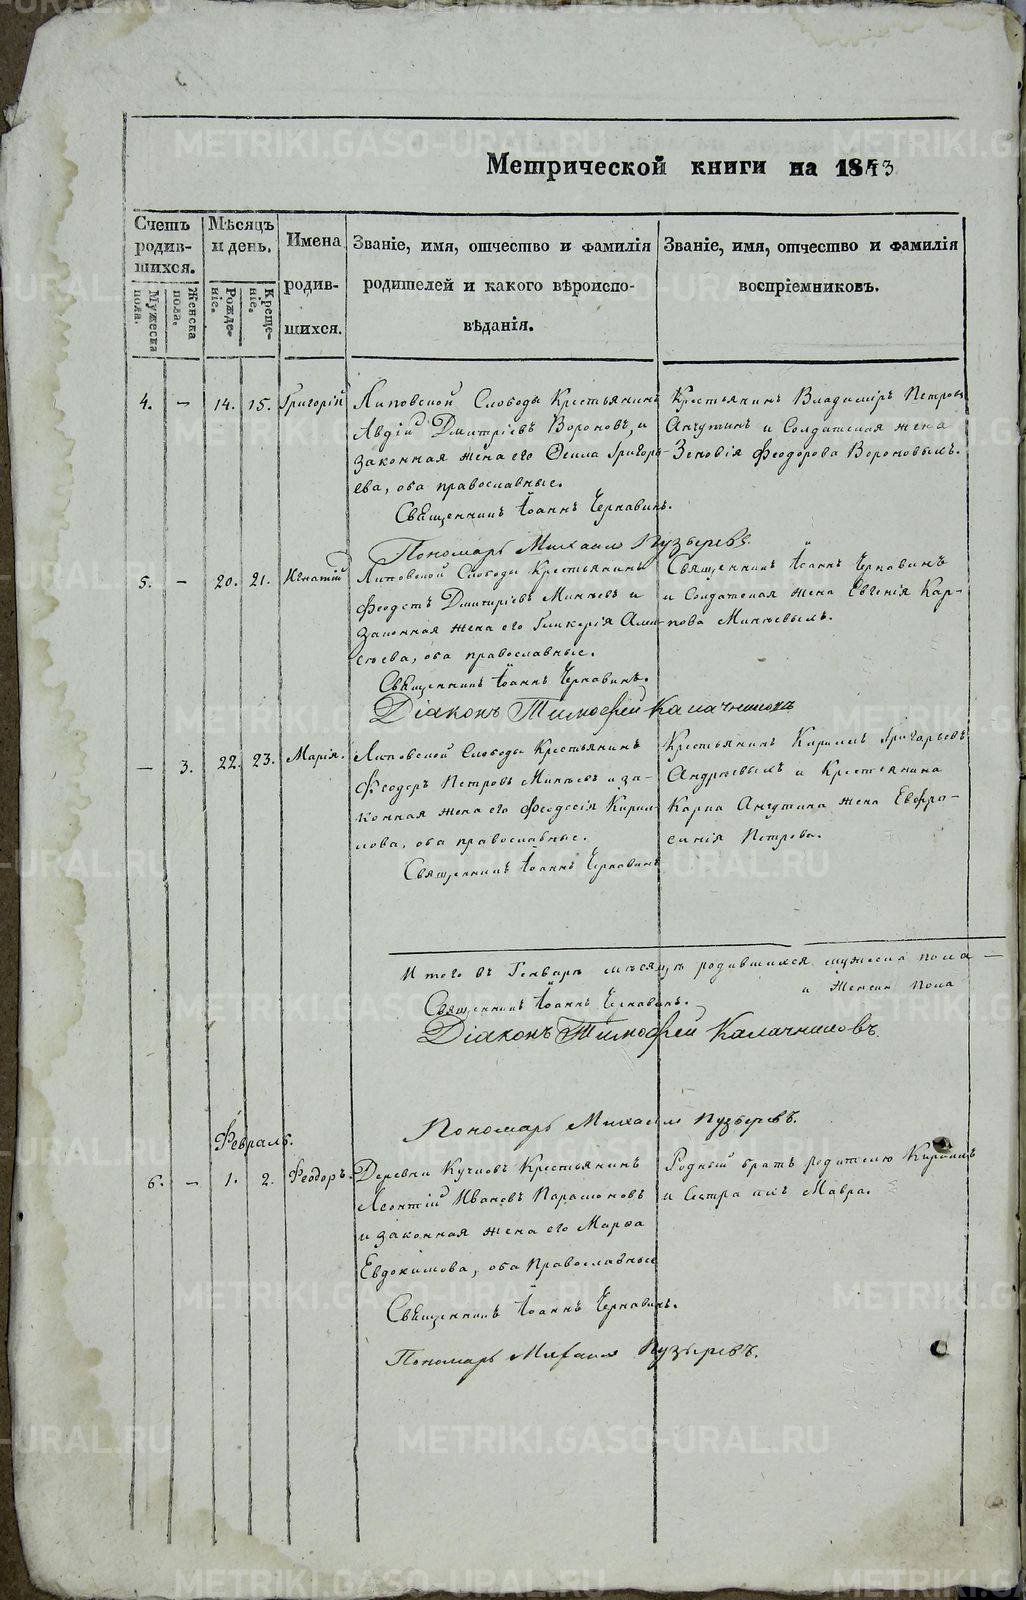 Метрической книги на 1843
Счетъ родив-шихся.
Мѣсяцъ и день.
Имена родив-шихся.
Званіе, имя, отчество и фамилія родителей и какого вѣроиспо-вѣданія.
Званіе, имя, отчество и фамилія воспріемниковъ.
Мужеска пола.
Женска пола.
Рожде-ніе.
Креще-ніе.
4. – 14. 15. Григорій
Липовской Слободы Крестьянинъ
Авдій Дмитріевъ Вороновъ, и
законная жена его Григорь-
ева, оба православные.
Крестьянинъ Владиміръ Петровъ
Анчутинъ и Солдатская жена
Зеновія Феодорова Вороновыхъ.
Священникъ Іоаннъ Чернавинъ.
Пономарь Михаилъ Пузыревъ.
5. – 20. 21. Игнатій
Липовской Слободы Крестьянинъ
Феодотъ Дмитріевъ Минѣевъ и
законная жена его Гликерія
оба православные.
Священникъ Іоаннъ Чернавинъ
и Солдатская жена Евгенія Кар-
пова Минѣевыхъ.
Священникъ Іоаннъ Чернавинъ.
Діаконъ Тимофей Калачниковъ
– 3. 22. 23. Марія.
Липовской Слободы Крестьянинъ
Феодоръ Петровъ Минѣевъ и за-
конная жена его Феодосія Кирил-
лова, оба православные.
Крестьянинъ Кириллъ Григорьевъ
и Крестьянина
Карпа Анчутина жена Евфро-
синія Петрова.
Священникъ Іоаннъ Чернавинъ
Итого въ Генварѣ мѣсяцѣ родившихся мужеска пола –
и Женска пола
Священникъ Іоаннъ Чернавинъ.
Діаконъ Тимофей Калачниковъ.
Пономарь Михаилъ Пузыревъ.
Февраль.
6. – 1. 2. Феодоръ.
Деревни Крестьянинъ
Леонтій Ивановъ Парамоновъ
и законная жена его Марфа
Евдокимова, оба Православные
Родный братъ родителю Кириллъ
и Сестра ихъ Мавра.
Священникъ Іоаннъ Чернавинъ.
Пономарь Михаилъ Пузыревъ.
METRIKI.GASO-URAL.RU